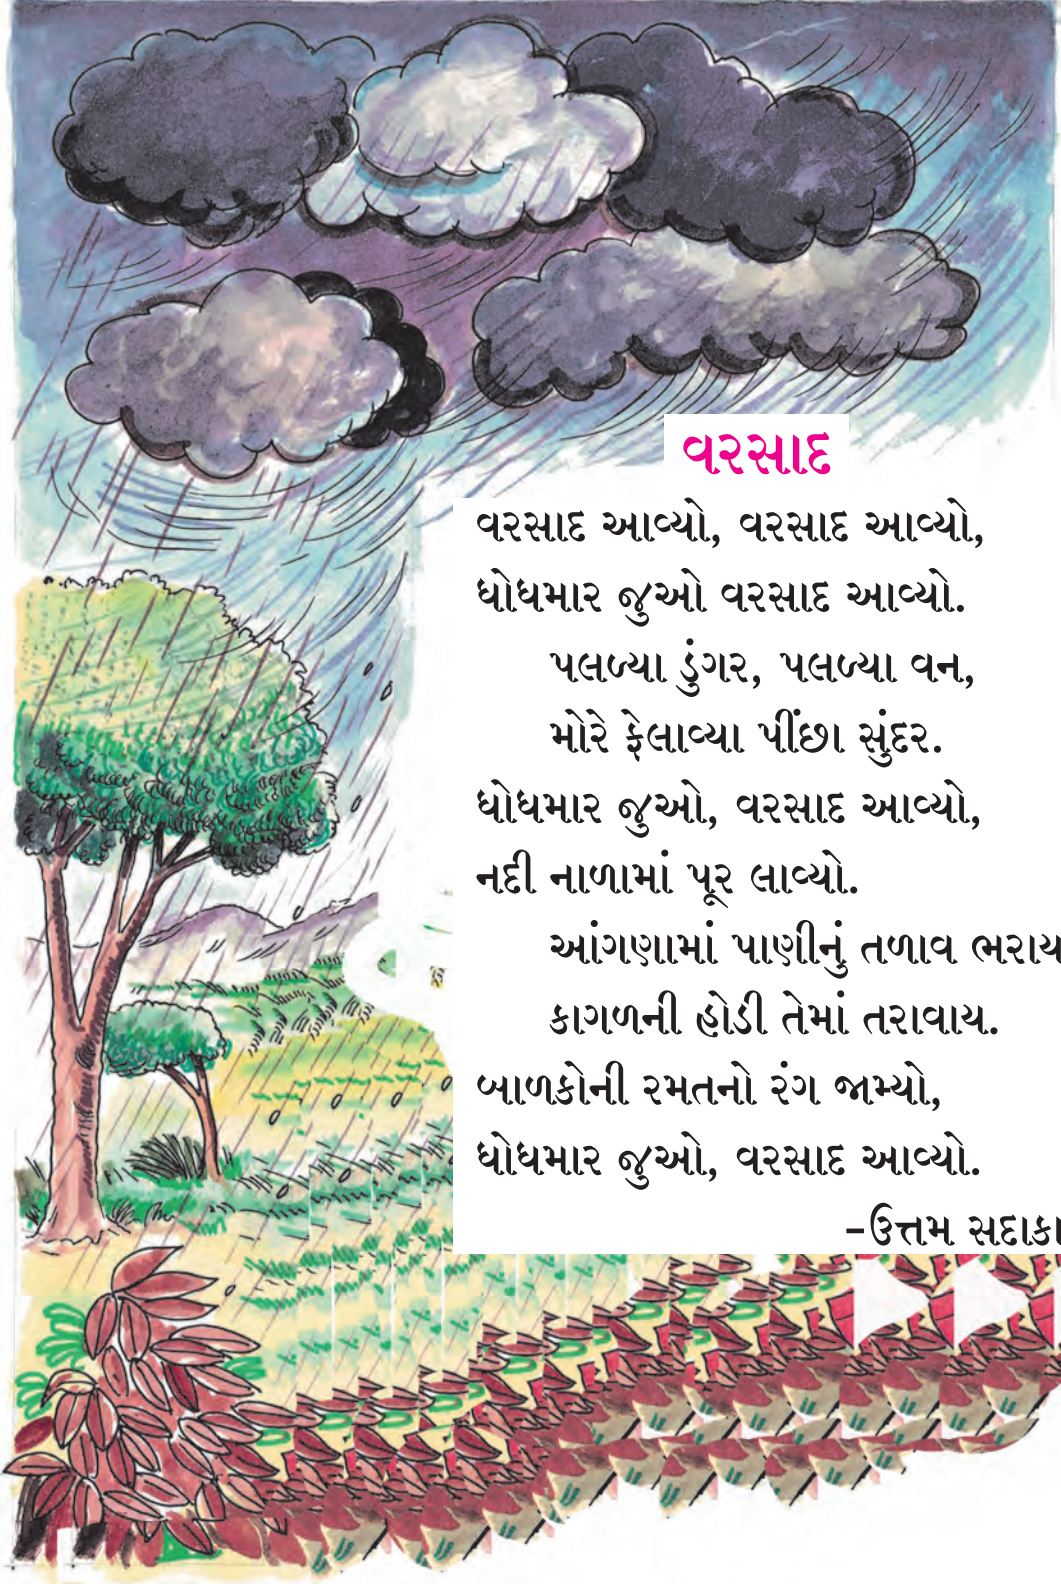 વરસાદ
વરસાદ આવ્યો, વરસાદ આવ્યો,
ધોધમાર જુઓ વરસાદ આવ્યો.
પલળ્યા ડુંગર, પલળ્યા વન,
મોરે ફેલાવ્યા પીંછા સુંદર.
ધોધમાર જુઓ, વરસાદ આવ્યો,
નદી નાળામાં પૂર લાવ્યો.
આંગણામાં પાણીનું તળાવ ભરાય
કાગળની હોડી તેમાં તરાવાય.
બાળકોની રમતનો રંગ જામ્યો,
ધોધમાર જુઓ, વરસાદ આવ્યો.
-ઉત્તમ સદાકા